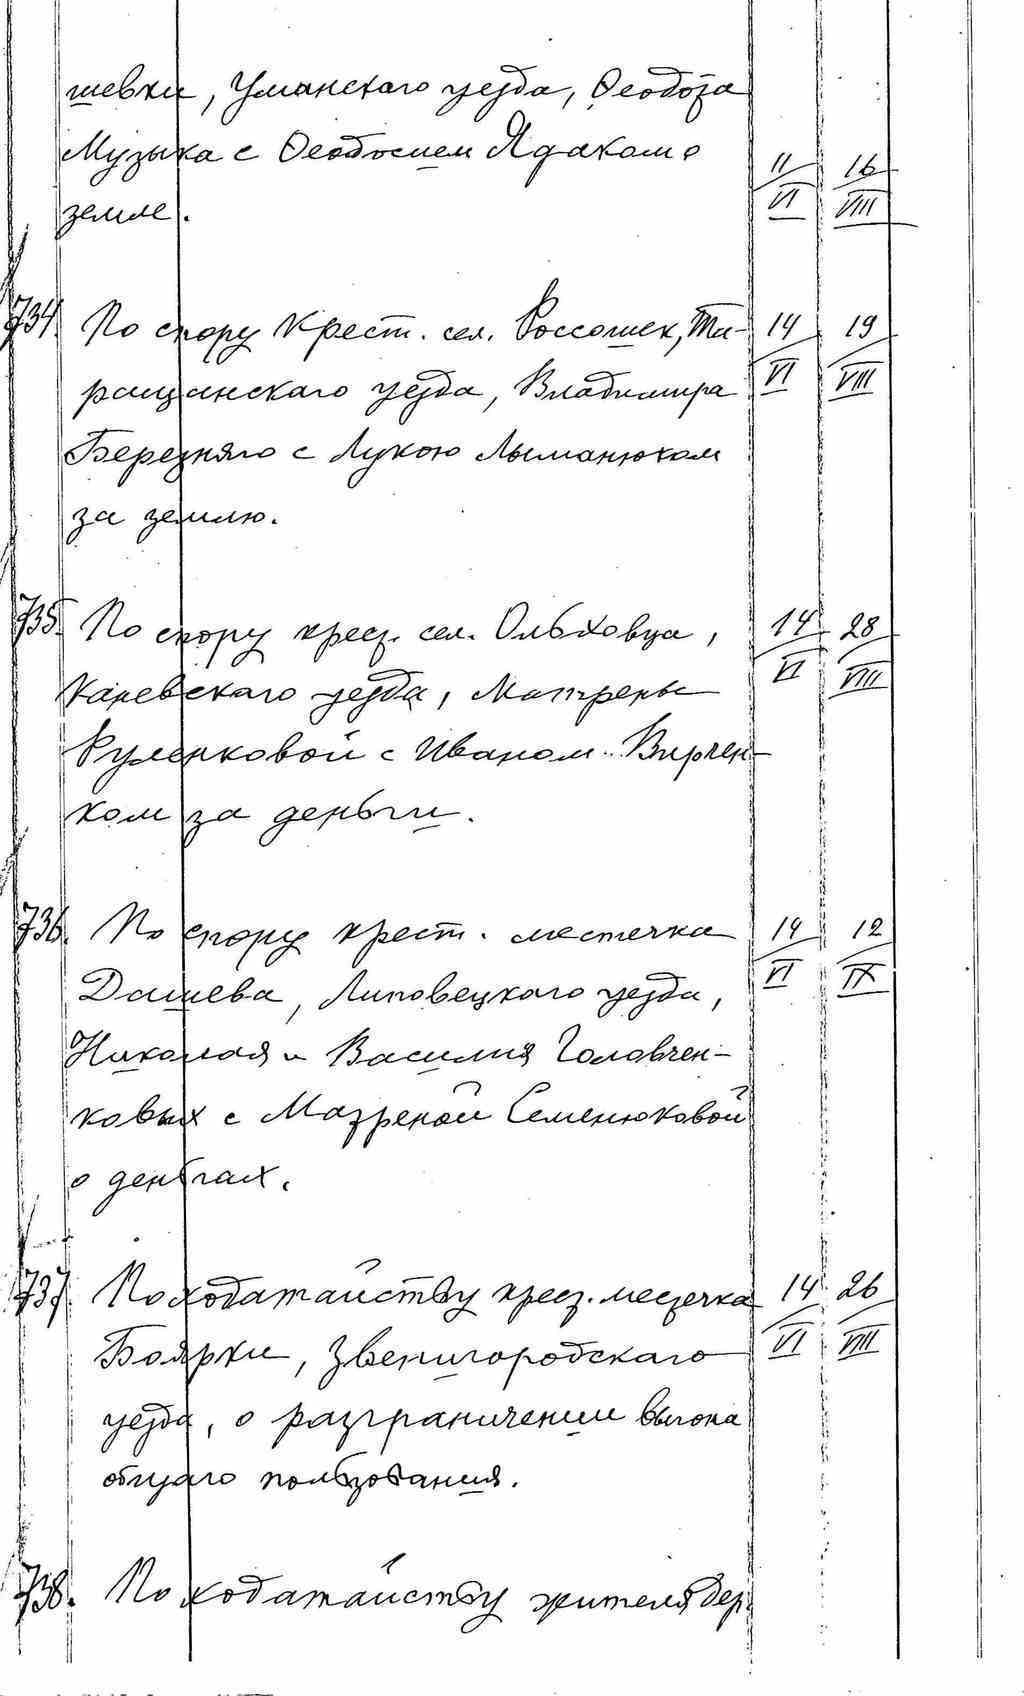 шевки, Уманскаго уезда, Феодора
Музыка с Феодосием Ядаком о
11 16
земле.
VI VIII
734. По спору Крест. сел. Россошек, Та-
14 19
ращанскаго уезда, Владимира
VI VIII
Березняго с Лукою Лыманюком
за землю.
735. По спору крест. сел. Ольховца,
14 28
Каневскаго уезда, Матрены
VI VIII
Руленковой с Иваном Вирчен-
ком за деньги.
736. По спору крест. местечка
14 12
Дашева, Липовецкаго уезда,
VI IX
Николая и Василия Головчен-
ковых с Матреной Семенюковой
о деньгах.
737. По ходатайству крест. местечка
14 26
Боярки, Звенигородскаго
VI VIII
уезда, о разграничении выгона
общаго пользования.
738. По ходатайству жителя дер.